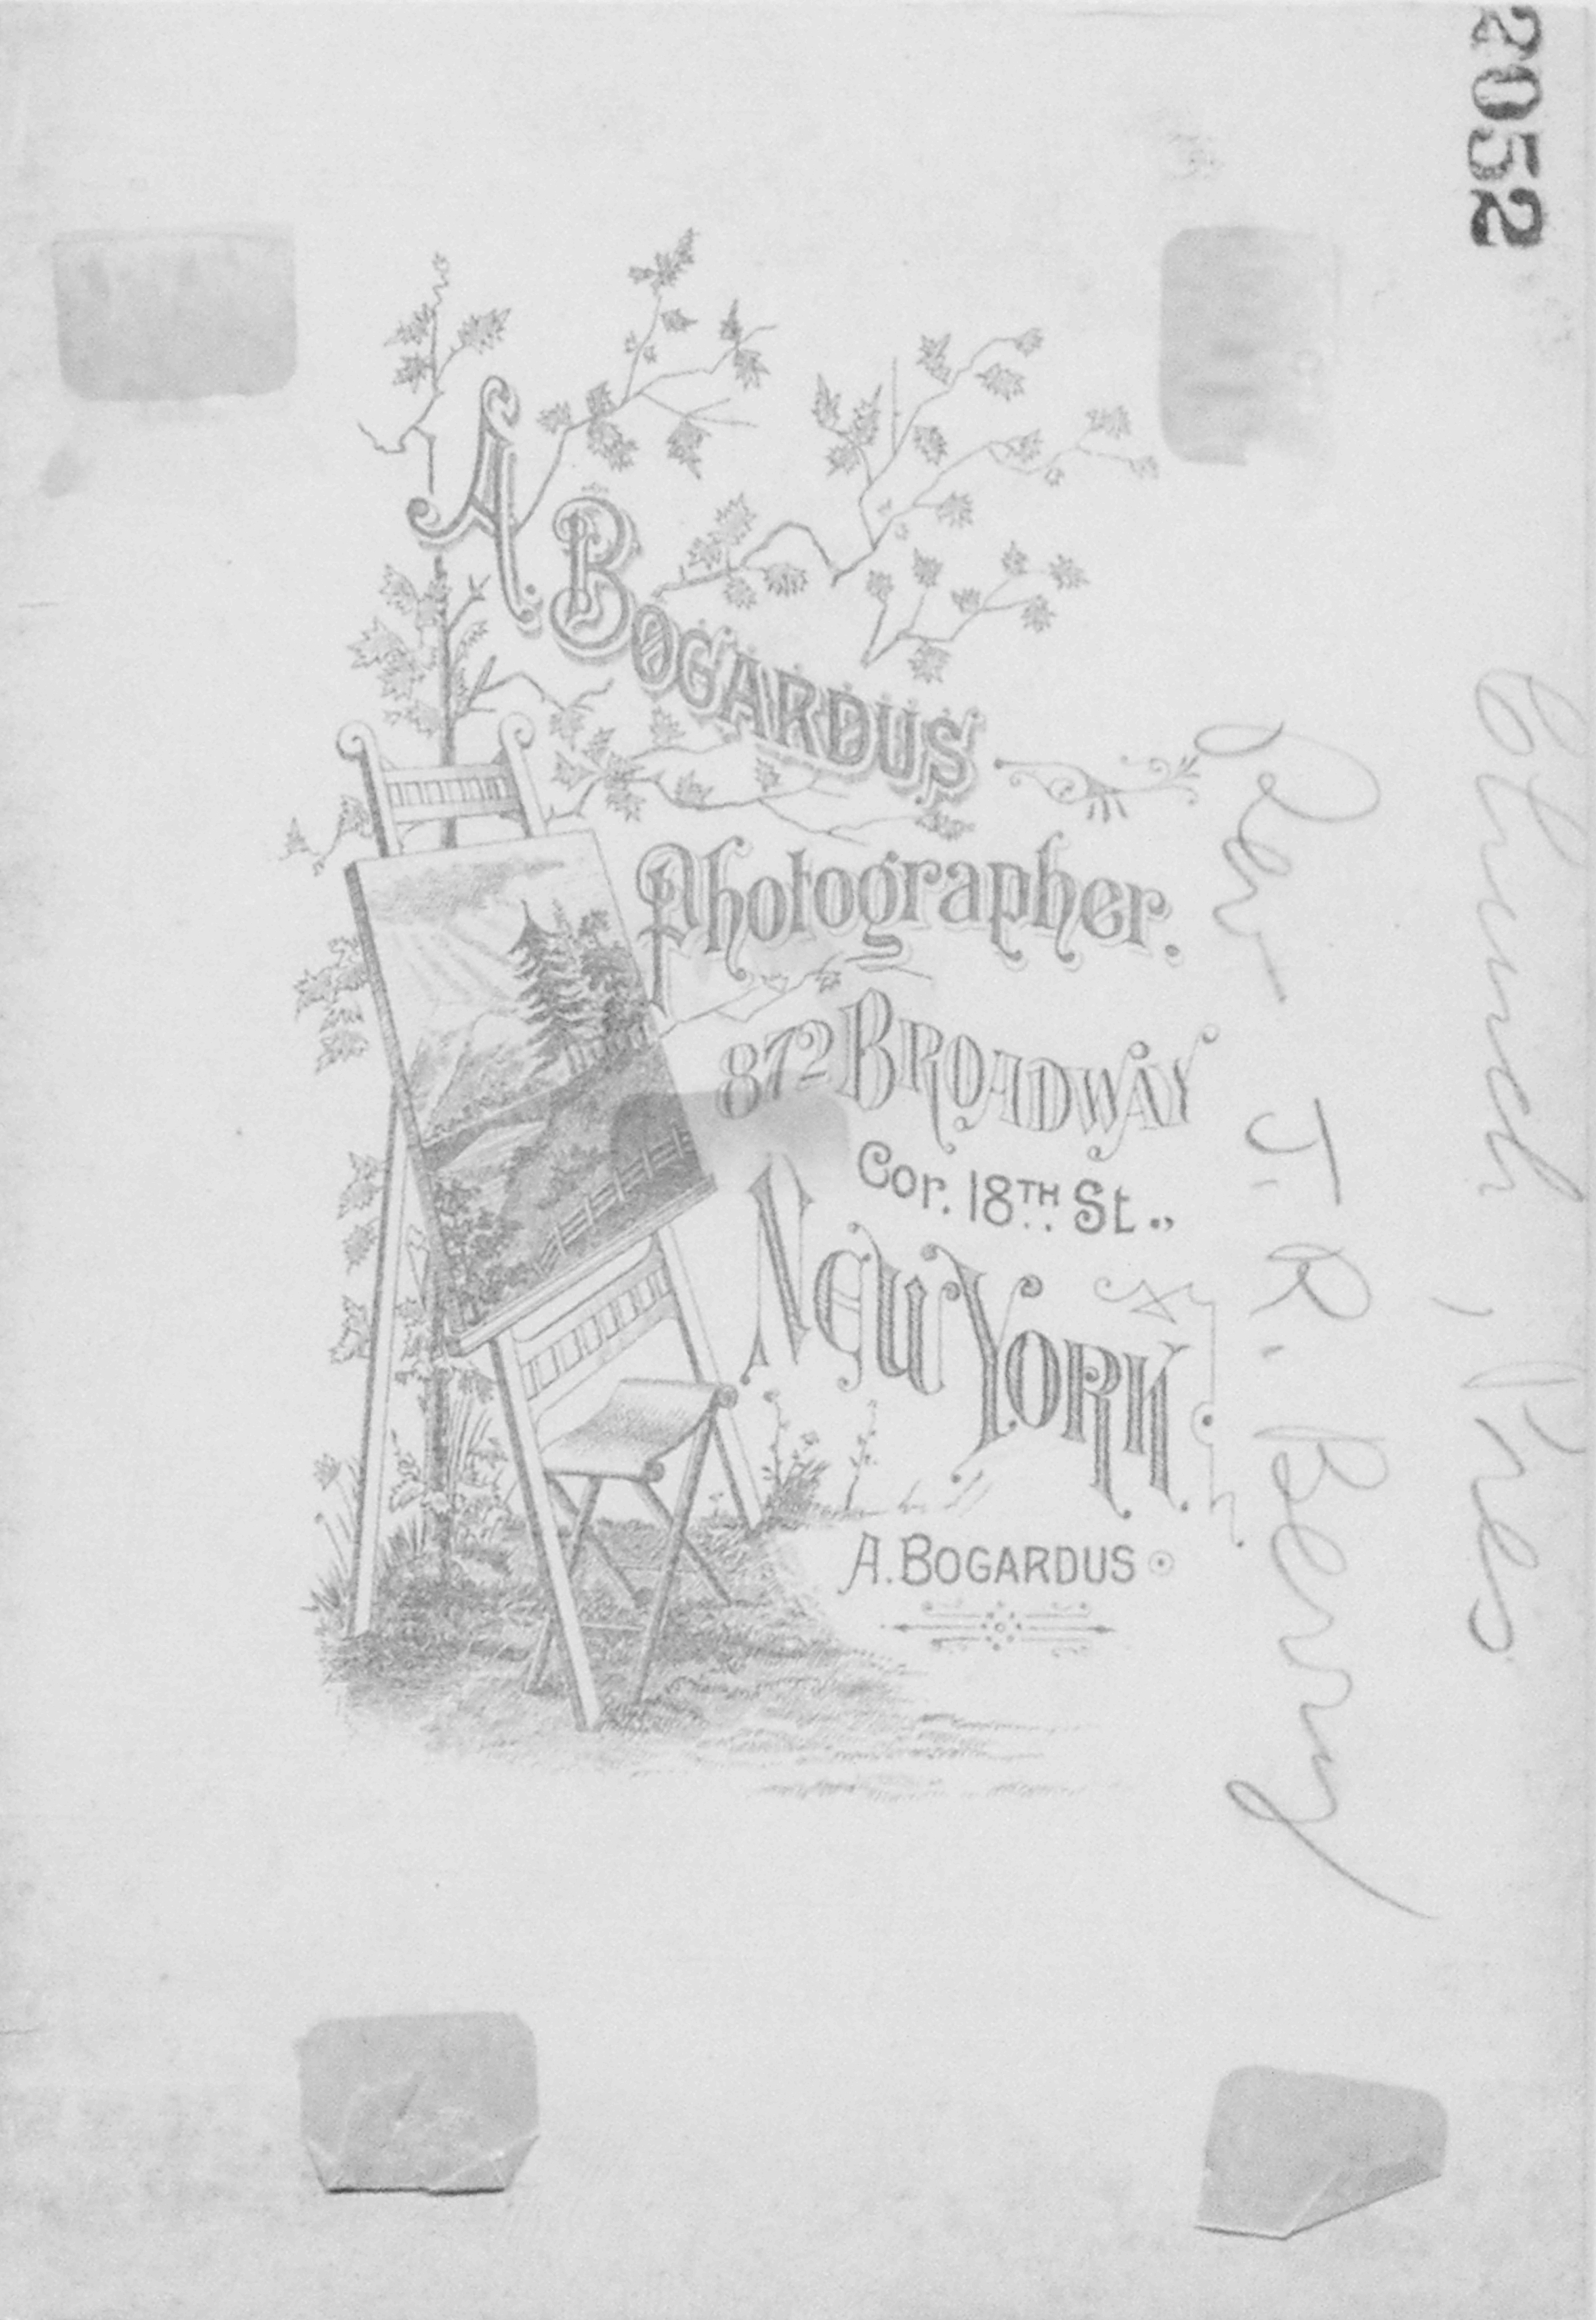 2052
A. BOGARDUS
Photographer.
872 BROADWAY
Cor. 18TH St.,
NEW YORK.
A. BOGARDUS
Church, Pres
Rev J. R. Berry